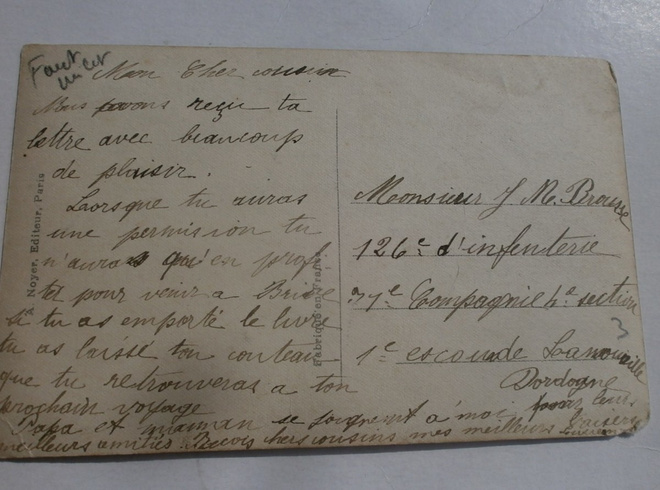 Mon Cher cousin
Nous avons reçu ta
lettre avec beaucoup
de plaisir.
Laorsque tu auras
une permision tu
n'auras qu'en profi
té pour venir a Brive
si tu as emporté le livre
tu as laissé ton couteau
que tu retrouveras a ton
prochain voyage
Papa et maman se joignent a moi pour leurs
meilleurs amitiés. Recois chers cousins mes meilleurs baisers
A. Noyer, Editeur, Paris
Fabriqué en France
Monsieur J M. Brousse
126e d'infenterie
37e Compagnie 4e section
1e escouade Lanouaille
Dordogne
3